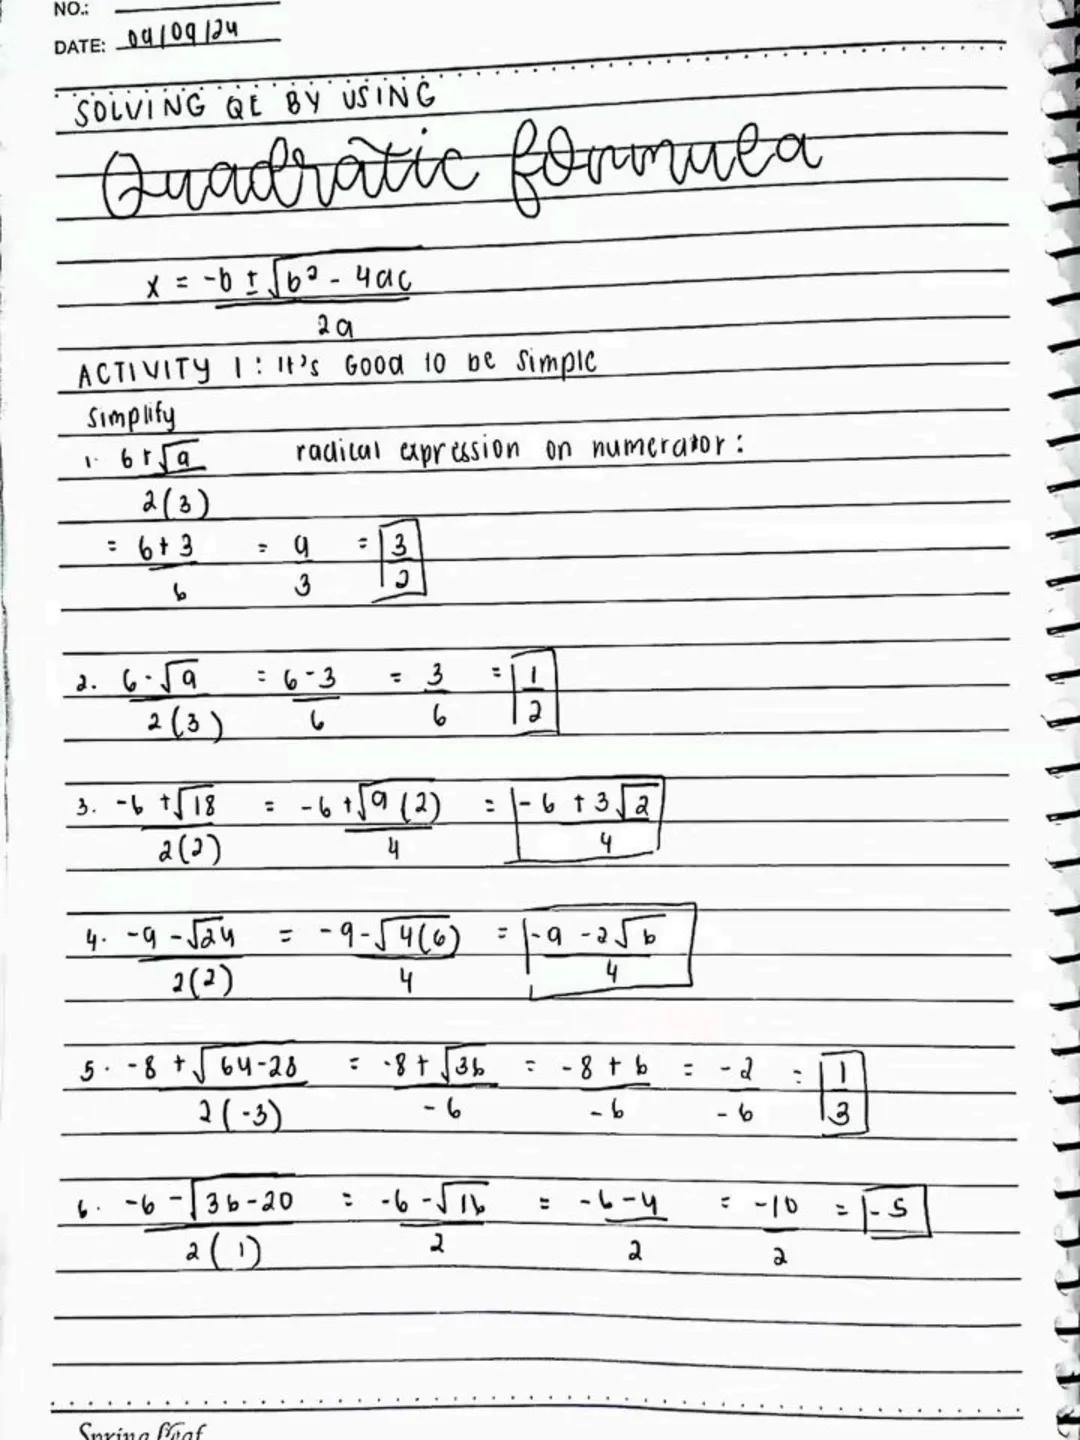 NO.:
DATE: 09/09/24
SOLVING QE BY USING
Quadratic formula
x = -b ± √b² - 4ac
2a
ACTIVITY 1: It's Good to be Simple
Simplify
1. 6+√9 radical expression on numerator:
2(3)
= 6+3 = 9 = 3
6 3 2
2. 6-√9 = 6-3 = 3 = 1
2(3) 6 6 2
3. -6 +√18 = -6+√9(2) = -6 + 3√2
2(2) 4 4
4. -9 -√24 = -9-√4(6) = -9 -2√6
2(2) 4 4
5. -8 +√64-28 = -8+√36 = -8 + 6 = -2 = 1
2(-3) -6 -6 -6 3
6. -6 -√36-20 = -6 -√16 = -6-4 = -10 = -5
2(1) 2 2 2
Spring Leaf